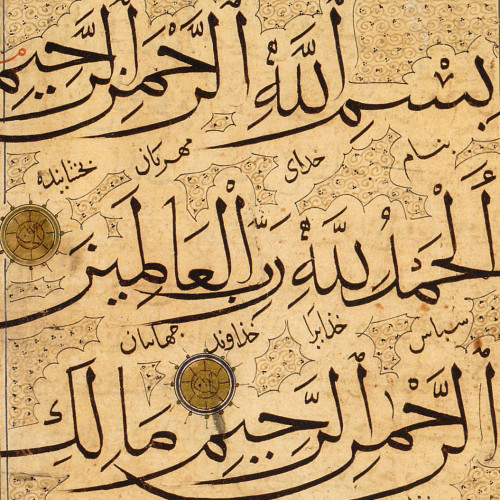 بِسْمِ اللَّهِ الرَّحْمَنِ الرَّحِيمِ
بنام خدای مهربان بخشاینده
اَلْحَمْدُ لِلَّهِ رَبِّ الْعَالَمِينَ
سپاس خدایرا خداوند جهانیان
اَلرَّحْمَنِ الرَّحِيمِ مَالِكِ